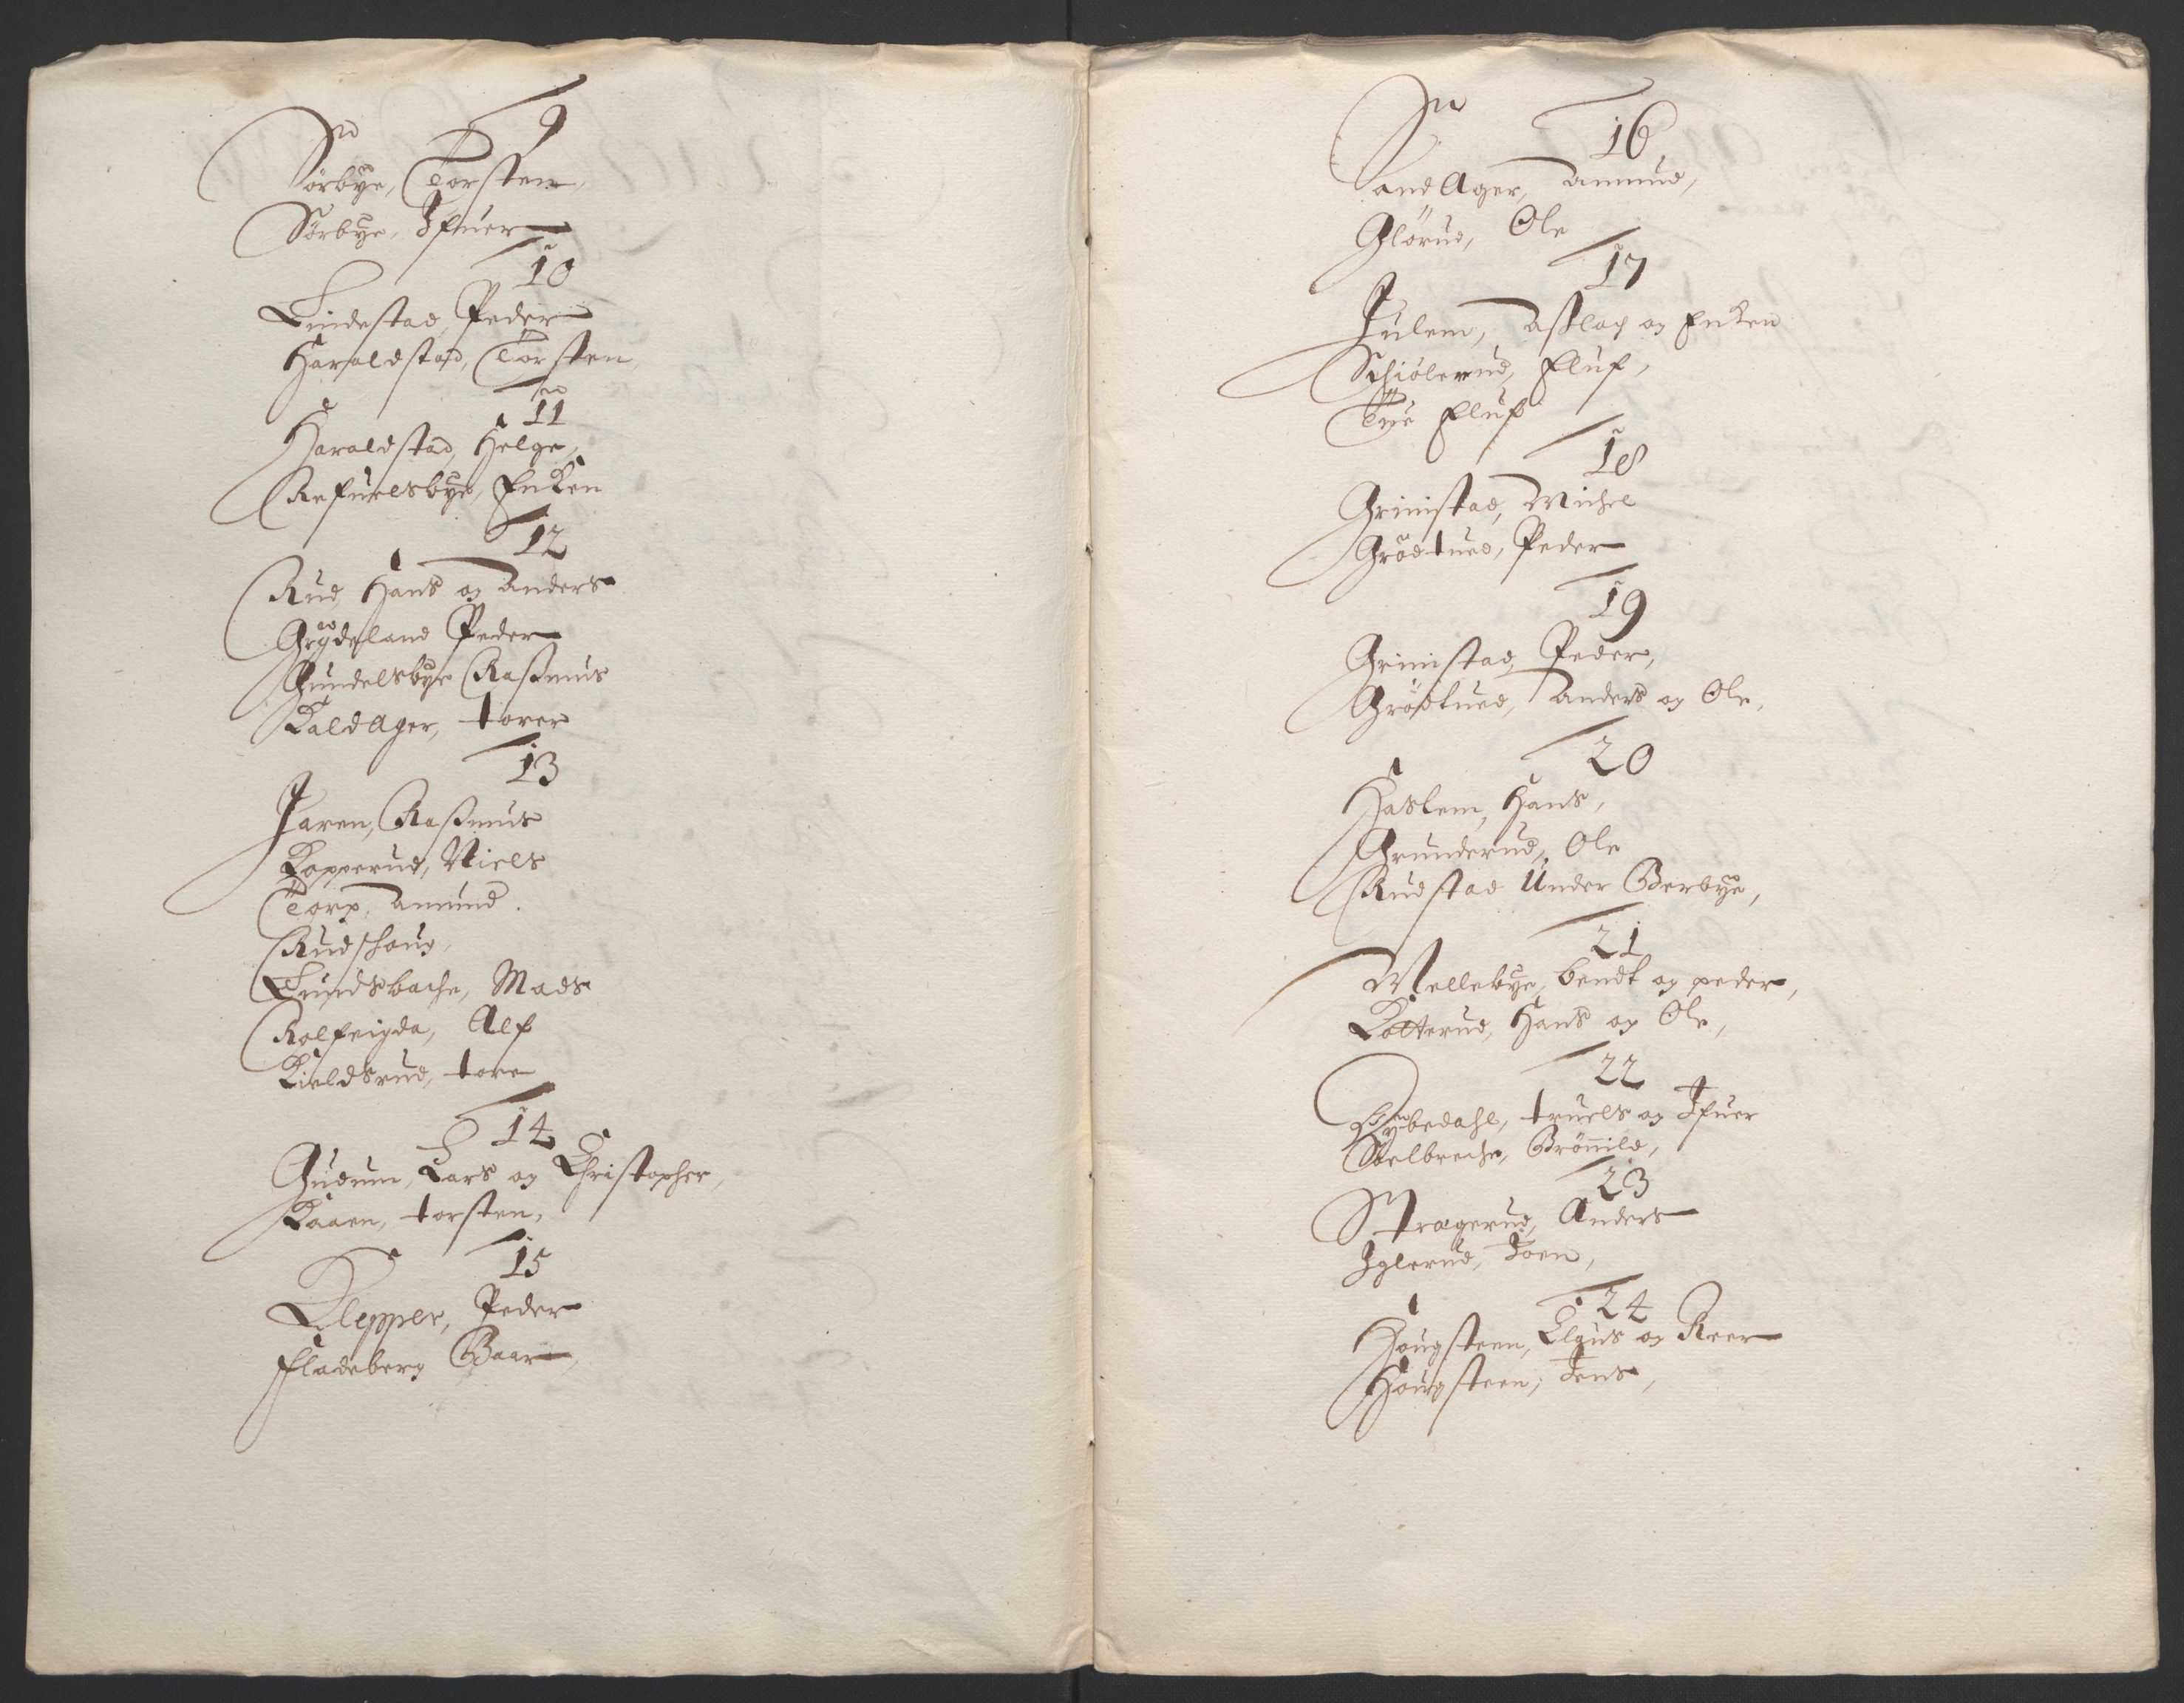 9
Sørbye, Torsten,
Sørbye, Ifuer
10
Lindestad, Peder
Haraldstad, Torsten,
11
Haraldstad, Helge,
Refuelsbye, Enken
12
Rud, Hans og Anders
Grydeland Peder
Gundelsbye Rasmus
Kaldager, torer
13
Jaren, Rasmus
Kopperud, Niels
Torp, Amund.
Rudshoug,
Lundsbache, Mads
Rolfeigda, Alf
Kieldsrud, tore
14
Gudum, Lars og Christopher,
Kaaen, torsten,
15
Klepper, Peder
Fladeberg Baar,
16
Sandager, Ammud,
Glörud, Ole
17
Julem, Aslag og Enken
Schiölerud, Eluf,
Tye Eluf
18
Grimstad, Michel
Grödtued, Peder
19
Grimstad, Peder,
Grödtued, Anders og Ole,
20
Haslem, Hans,
Grunderud, Ole
Rudstad Under Berbye,
21
Mellebye, bendt og peder,
Kolterud, Hans og Ole,
22
Dybedahl, truels og Ifuer
Stelbreche, Brönnild,
23
Stragerud, Anders
Iglerud, Joen,
24
Hougsteen, Claus og Reer
Hougsteen, Jens,